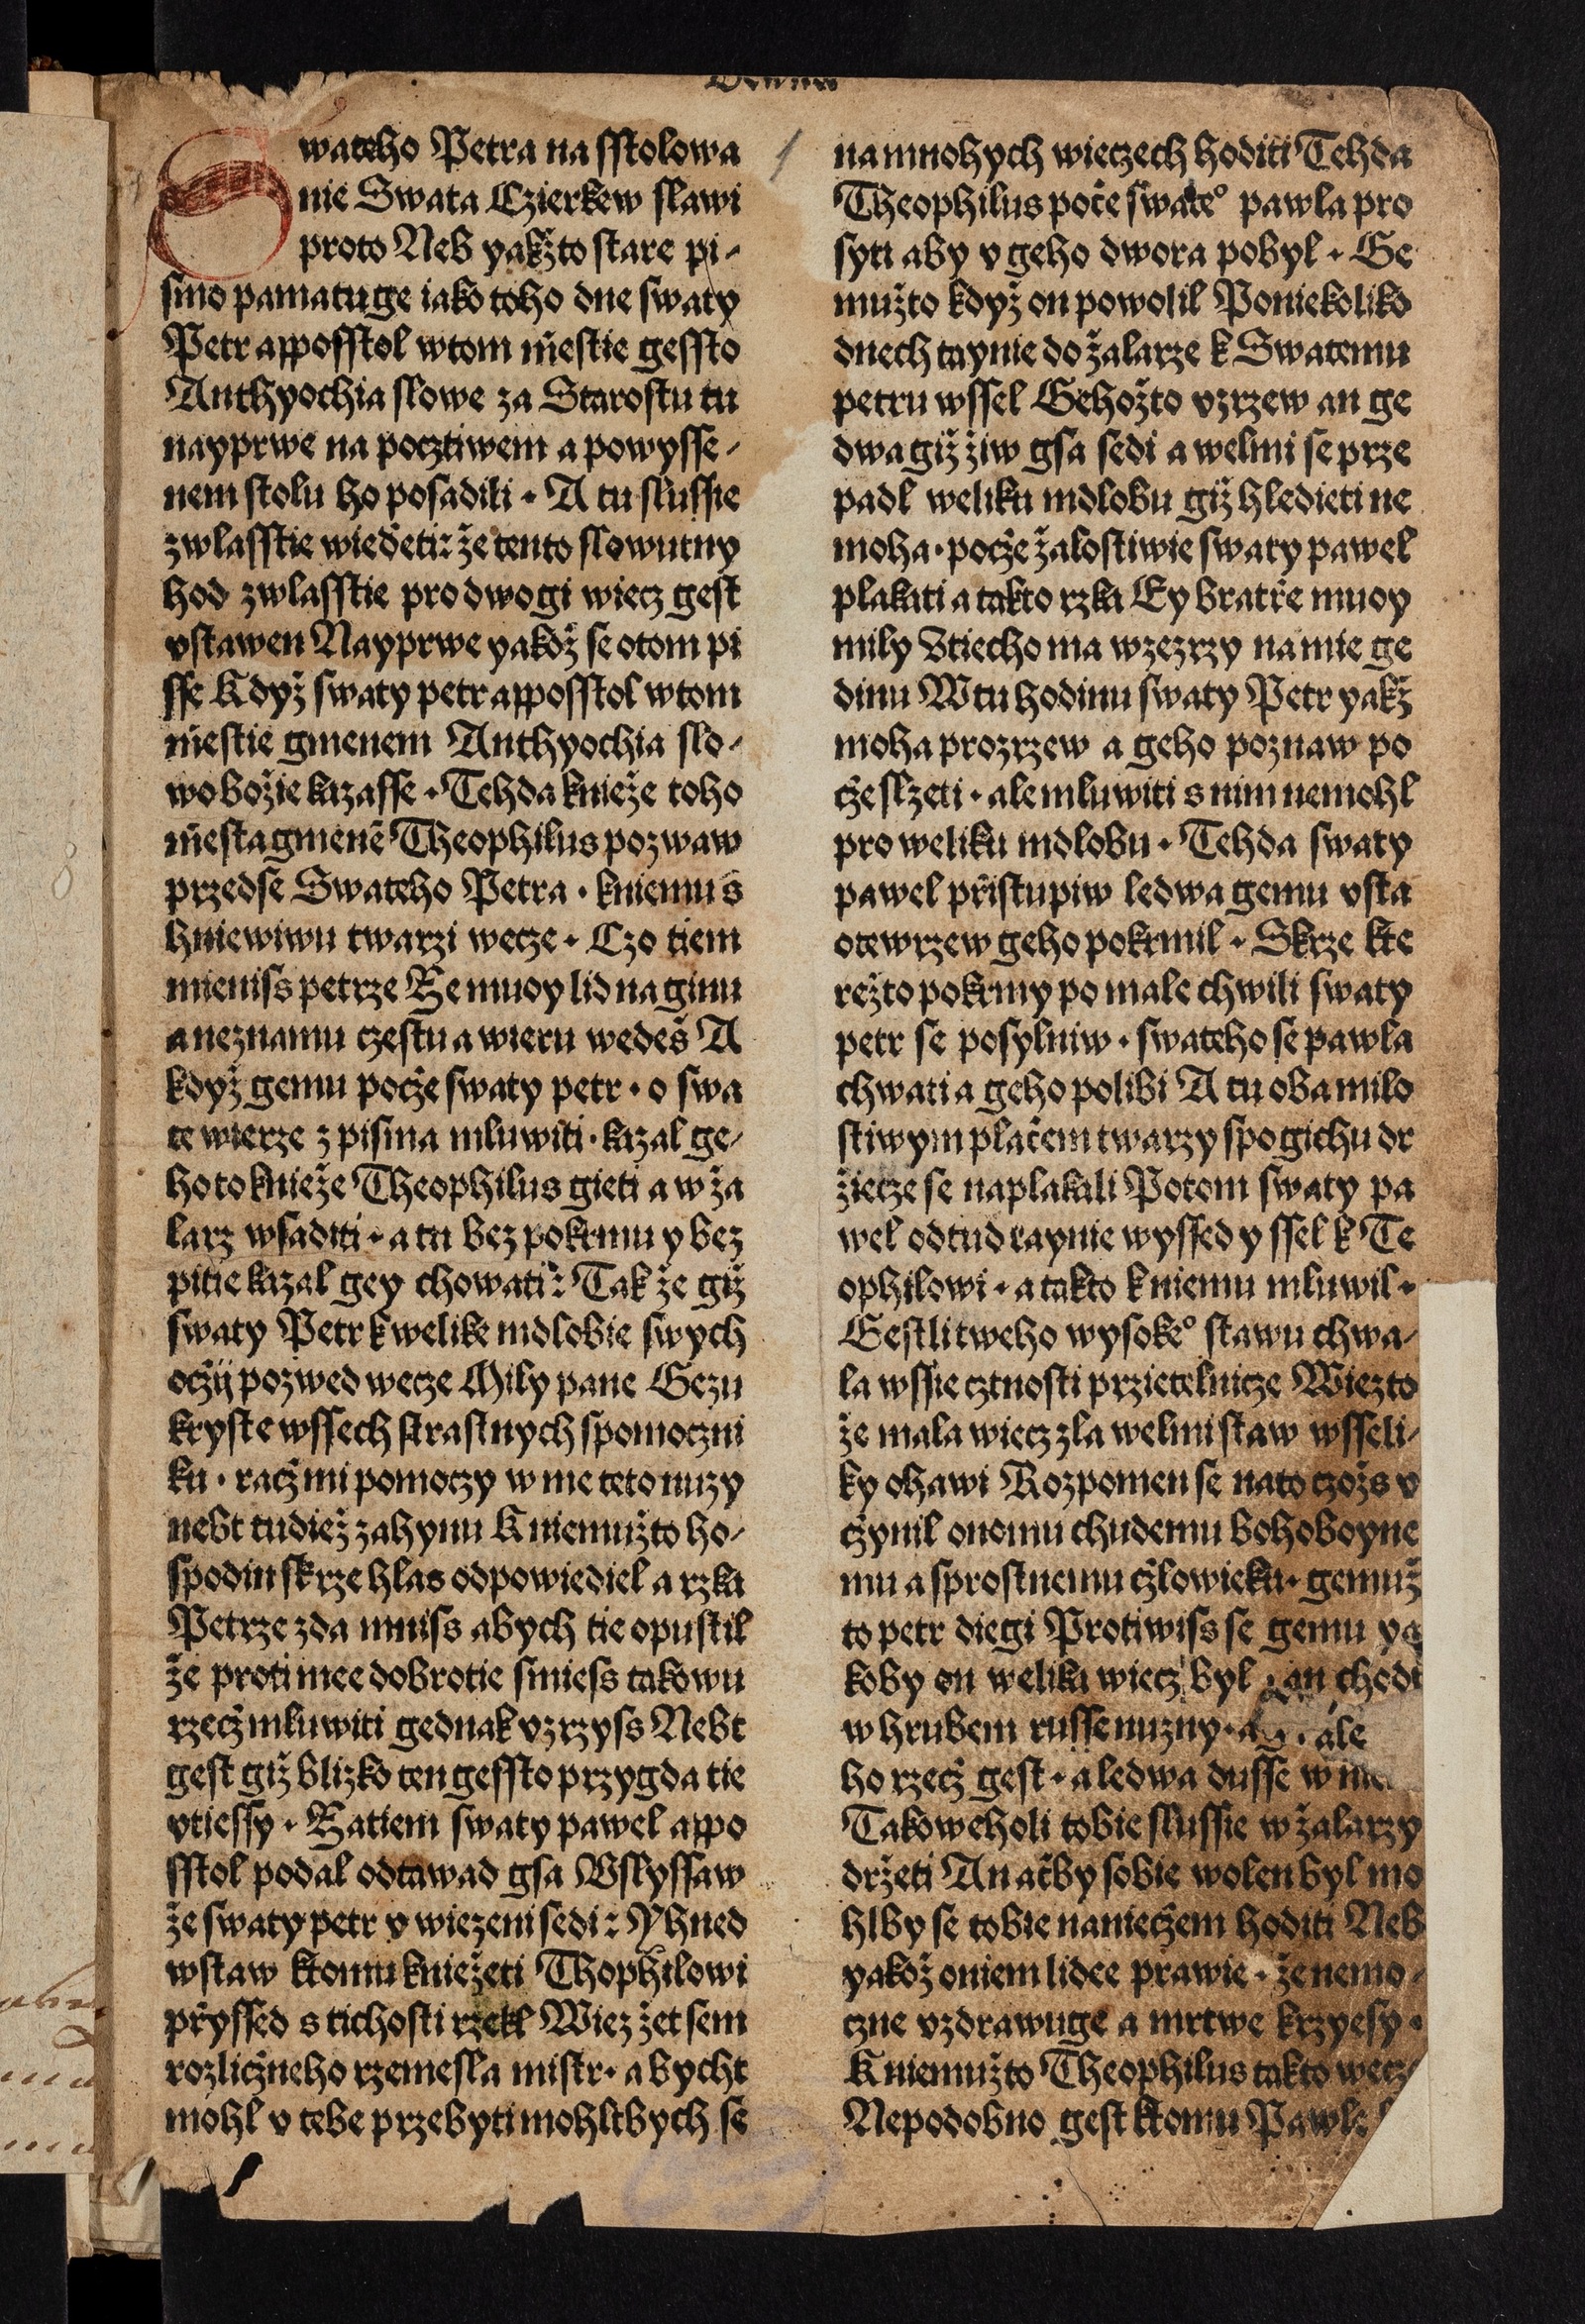 Swateho Petra na sstolowa
nie Swata Czierkew slawi
proto Neb yakžto stare pi-
smo pamatuge iako toho dne swaty
Petr apposstol w tom miestie gessto
Anthyochia slowe za Starostu tu
nayprwe na pocztiwem a powysse-
nem stolu ho posadili · A tu slussie
zwlasstie wiedieti: že tento slowutny
hod zwlasstie pro dwogi wiecz gest
vstawen Nayprwe yakož se o tom pi
sse Když swaty petr apposstol w tom
miestie gmenem Anthyochia slo-
wo božie kazasse · Tehda knieže toho
miesta gmenē Theophilus pozwaw
przed se Swateho Petra · k niemu s
hniewiwu twarzi wecze · Czo tiem
mieniss petrze Že muoy lid na ginu
a neznamu czestu a wieru wedeš A
když gemu počze swaty petr · o swa
te wierze z pisma mluwiti · kazal ge-
hoto knieže Theophilus gieti a w ža
larz wsaditi · a tu bez pokrmu y bez
pitie kazal gey chowati: Tak že giž
swaty Petr k welike mdlobie swych
oczij pozwed wecze Mily pane Gezu
kryste wssech strastnych spomoczni
ku · račz mi pomoczy w me teto nuzy
nebt tudiež zahynu K niemužto ho-
spodin skrze hlas odpowiediel a rzka
Petrze zda mniss abych tie opustil
že proti mee dobrotie smiess takowu
rzecž mluwiti gednak vzrzyss Nebt
gest giž blizko ten gessto przygda tie
vtiessy · Zatiem swaty pawel appo
sstol podal odtawad gsa Vslyssaw
že swaty petr v wiezeni sedi: Yhned
wstaw k tomu kniežeti Thophilowi
přyssed s tichosti rzekl Wiez žet sem
rozličzneho rzemesla mistr · a bycht
mohl v tebe przebyti mohltbych se
na mnohych wieczech hoditi Tehda
Theophilus poče swate° pawla pro
syti aby v geho dwora pobyl · Ge
mužto když on powolil Po niekoliko
dnech taynie do žalarze k Swatemu
petru wssel Gehožto vzrzew an ge
dwa giž žiw gsa sedi a welmi se prze
padl weliku mdlobu giž hledieti ne
moha · počze žalostiwie swaty pawel
plakati a takto rzka Ey bratře muoy
mily Vtiecho ma wzezrzy na mie ge
dinu W tu hodinu swaty Petr yakž
moha prozrzew a geho poznaw po
cže slzeti · ale mluwiti s nim nemohl
pro weliku mdlobu · Tehda swaty
pawel přistupiw ledwa gemu vsta
otewrzew geho pokrmil · Skrze kte
režto pokrmy po male chwili swaty
petr se posylniw · swateho se pawla
chwati a geho polibi A tu oba milo
stiwym plačem twarzy spogichu dr
žiecze se naplakali Potom swaty pa
wel odtud taynie wyssed y ssel k Te
ophilowi · a takto k niemu mluwil ·
Gestli tweho wysoke° stawu chwa-
la wssie cztnosti przietelnicze Wiez to
že mala wiecz zla welmi staw wsseli-
ky ohawi Rozpomen se na to czožs v
cžynil onomu chudemu bohoboyne
mu a sprostnemu cžlowieku · gemuž
to petr diegi Protiwiss se gemu ya
koby on welika wiecz byl · an chodi
w hrubem russe nuzny · ale
ho rzecž gest · a ledwa dusse w
Takoweholi tobie slussie w žalarzy
držeti An ačby sobie wolen byl mo
hlby se tobie na niečzem hoditi Neb
yakož o niem lidee prawie · že nemo-
czne vzdrawuge a mrtwe krzyesy ·
K niemužto Theophilus takto wecz
Nepodobno gest k tomu Pawle